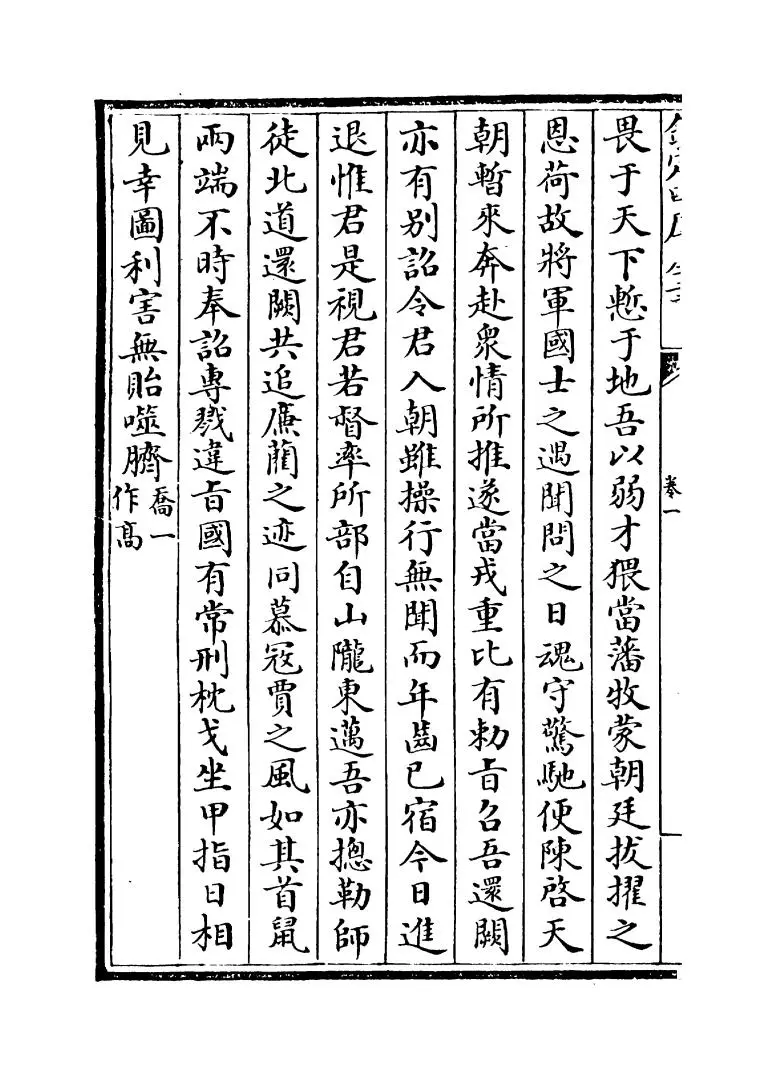 畏于天下慙于地吾以弱才猥當藩牧蒙朝廷拔擢之
恩荷故將軍國士之遇聞問之日魂守驚馳便陳啓天
朝暫來奔赴衆情所推遂當戎重比有勅㫖召吾還闕
亦有别詔令君入朝雖操行無聞而年齒已宿今日進
退惟君是視君若督率所部自山隴東邁吾亦摠勒師
徒北道還闕共追廉藺之迹同慕冦賈之風如其首鼠
兩端不時奉詔專戮違㫖國有常刑枕戈坐甲指日相
見幸圖利害無貽噬臍喬一
作髙
卷一